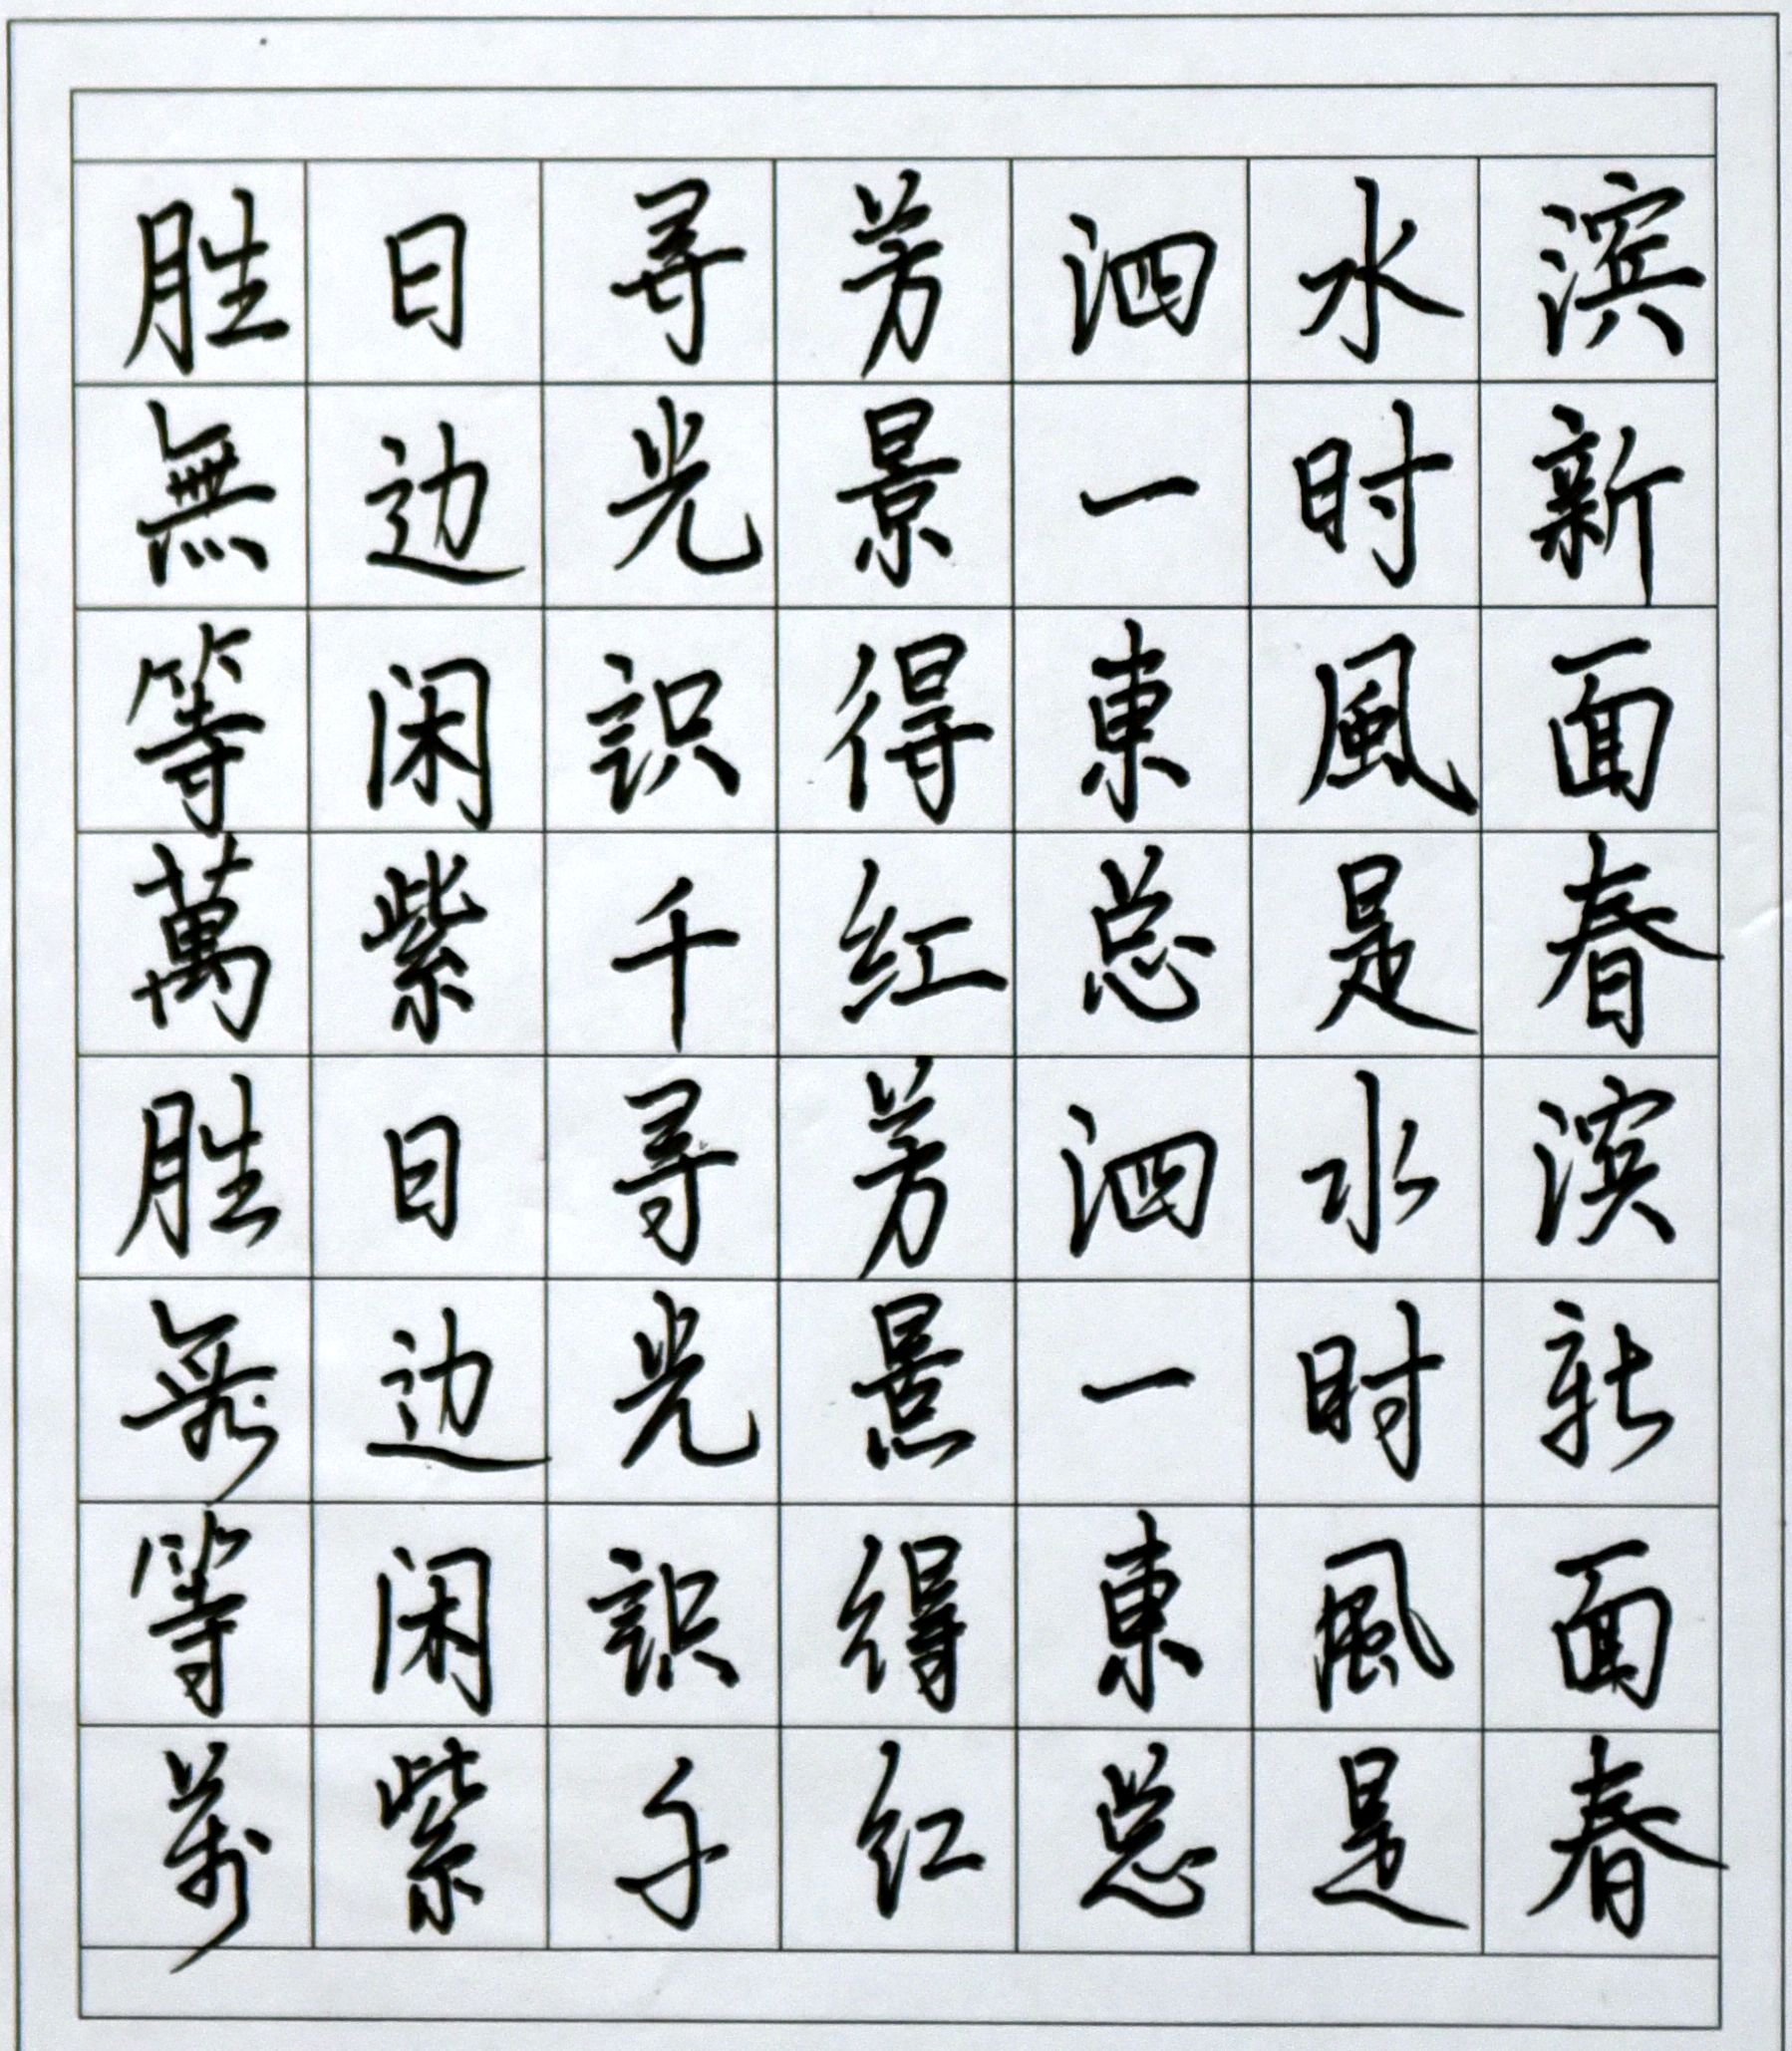 胜日寻芳泗水滨
無边光景一时新
等闲識得東風面
萬紫千红总是春
胜日寻芳泗水滨
無边光景一时新
等闲識得東風面
萬紫千红总是春